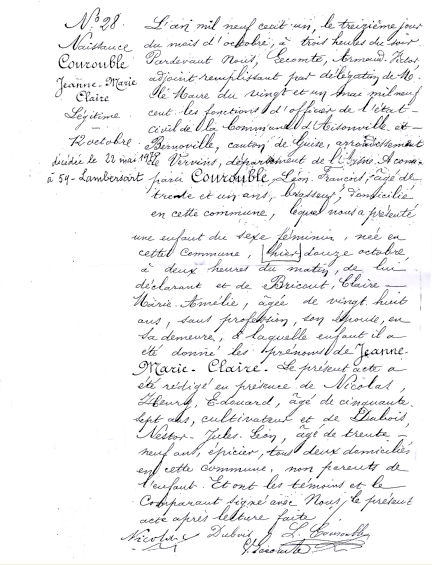 N° 28.
Naissance
Courouble
Jeanne-Marie
Claire
Légitime
12 octobre
décédée le 22 mai 1978
à 59-Lambersart
L'an mil neuf cent un, le treizième jour
du mois d'octobre, à trois heures du soir
Pardevant Nous, Lecomte, Armand-Victor,
adjoint remplissant par délégation de M.
le Maire du vingt et un mai mil neuf
cent les fonctions d'officier de l'état-
civil de la Commune d'Aisonville-et-
Bernoville, canton de Guise, arrondissement
de Vervins, département de l'Aisne. A com-
paru Courouble, Léon-François, âgé de
trente et un ans, brasseur, domicilié
en cette commune, lequel nous a présenté
une enfant du sexe féminin, née en
cette Commune, hier douze octobre,
à deux heures du matin, de lui
déclarant et de Bricout, Claire-
Marie-Amélie, âgée de vingt huit
ans, sans profession, son épouse, en
sa demeure, à laquelle enfant il a
été donné les prénoms de Jeanne-
Marie-Claire. Le présent acte a
été rédigé en présence de Nicolas,
Henry, Edouard, âgé de cinquante
sept ans, cultivateur et de Dubois,
Nestor-Jules-Léon, âgé de trente-
neuf ans, épicier, tous deux domiciliés
en cette commune, non parents de
l'enfant. Et ont les témoins et le
Comparant signé avec Nous, le présent
acte après lecture faite.
Nicolas Dubois L. Courouble
Lecomte